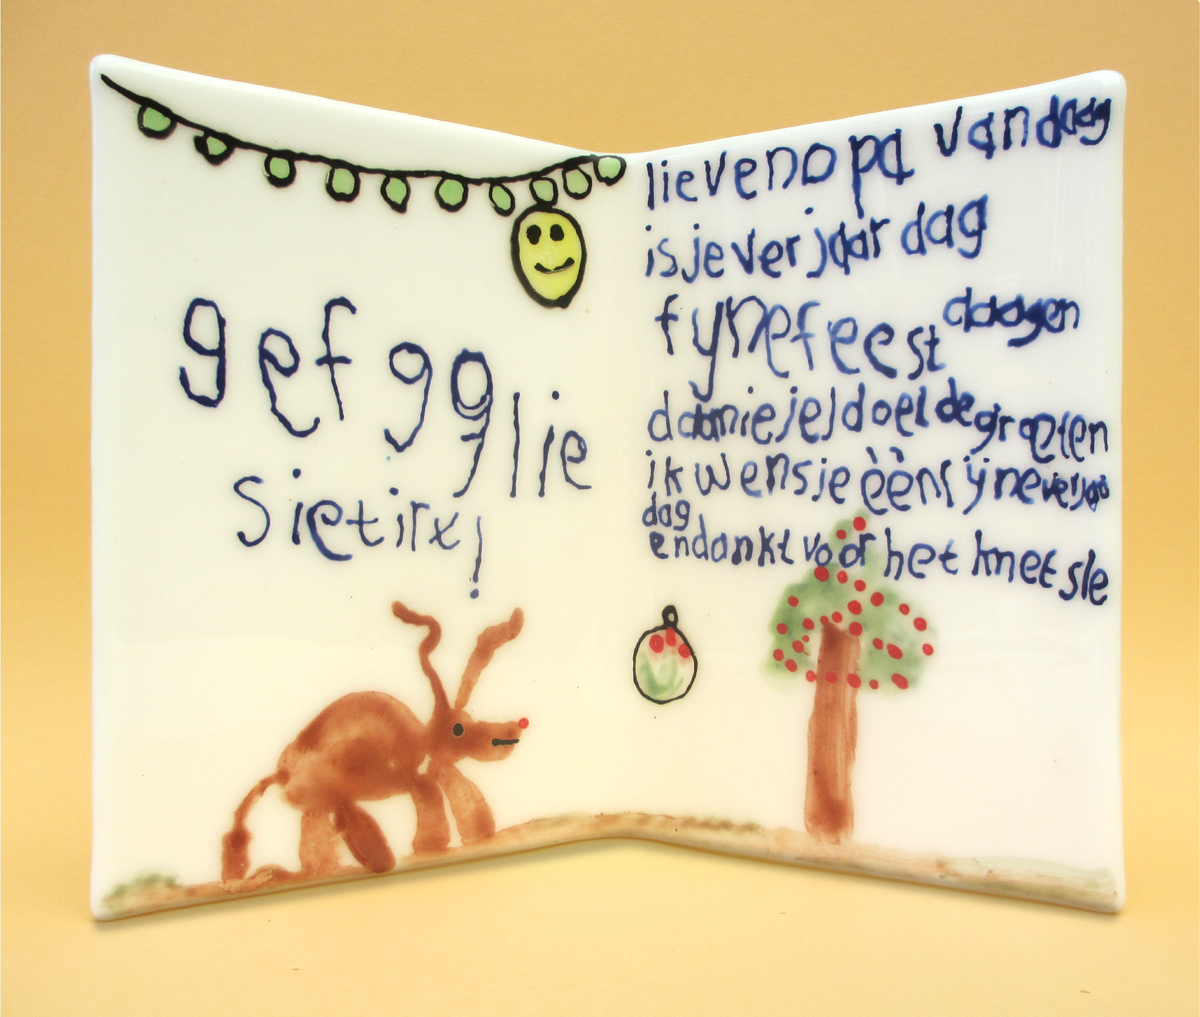 gef gglie
sietirx!
lieve nopa vandaag
is je ver jaar dag
fyne feest daagen
de groeten
ik wens je èèn fijne verjaa
dag
en dankt voor het knetsle